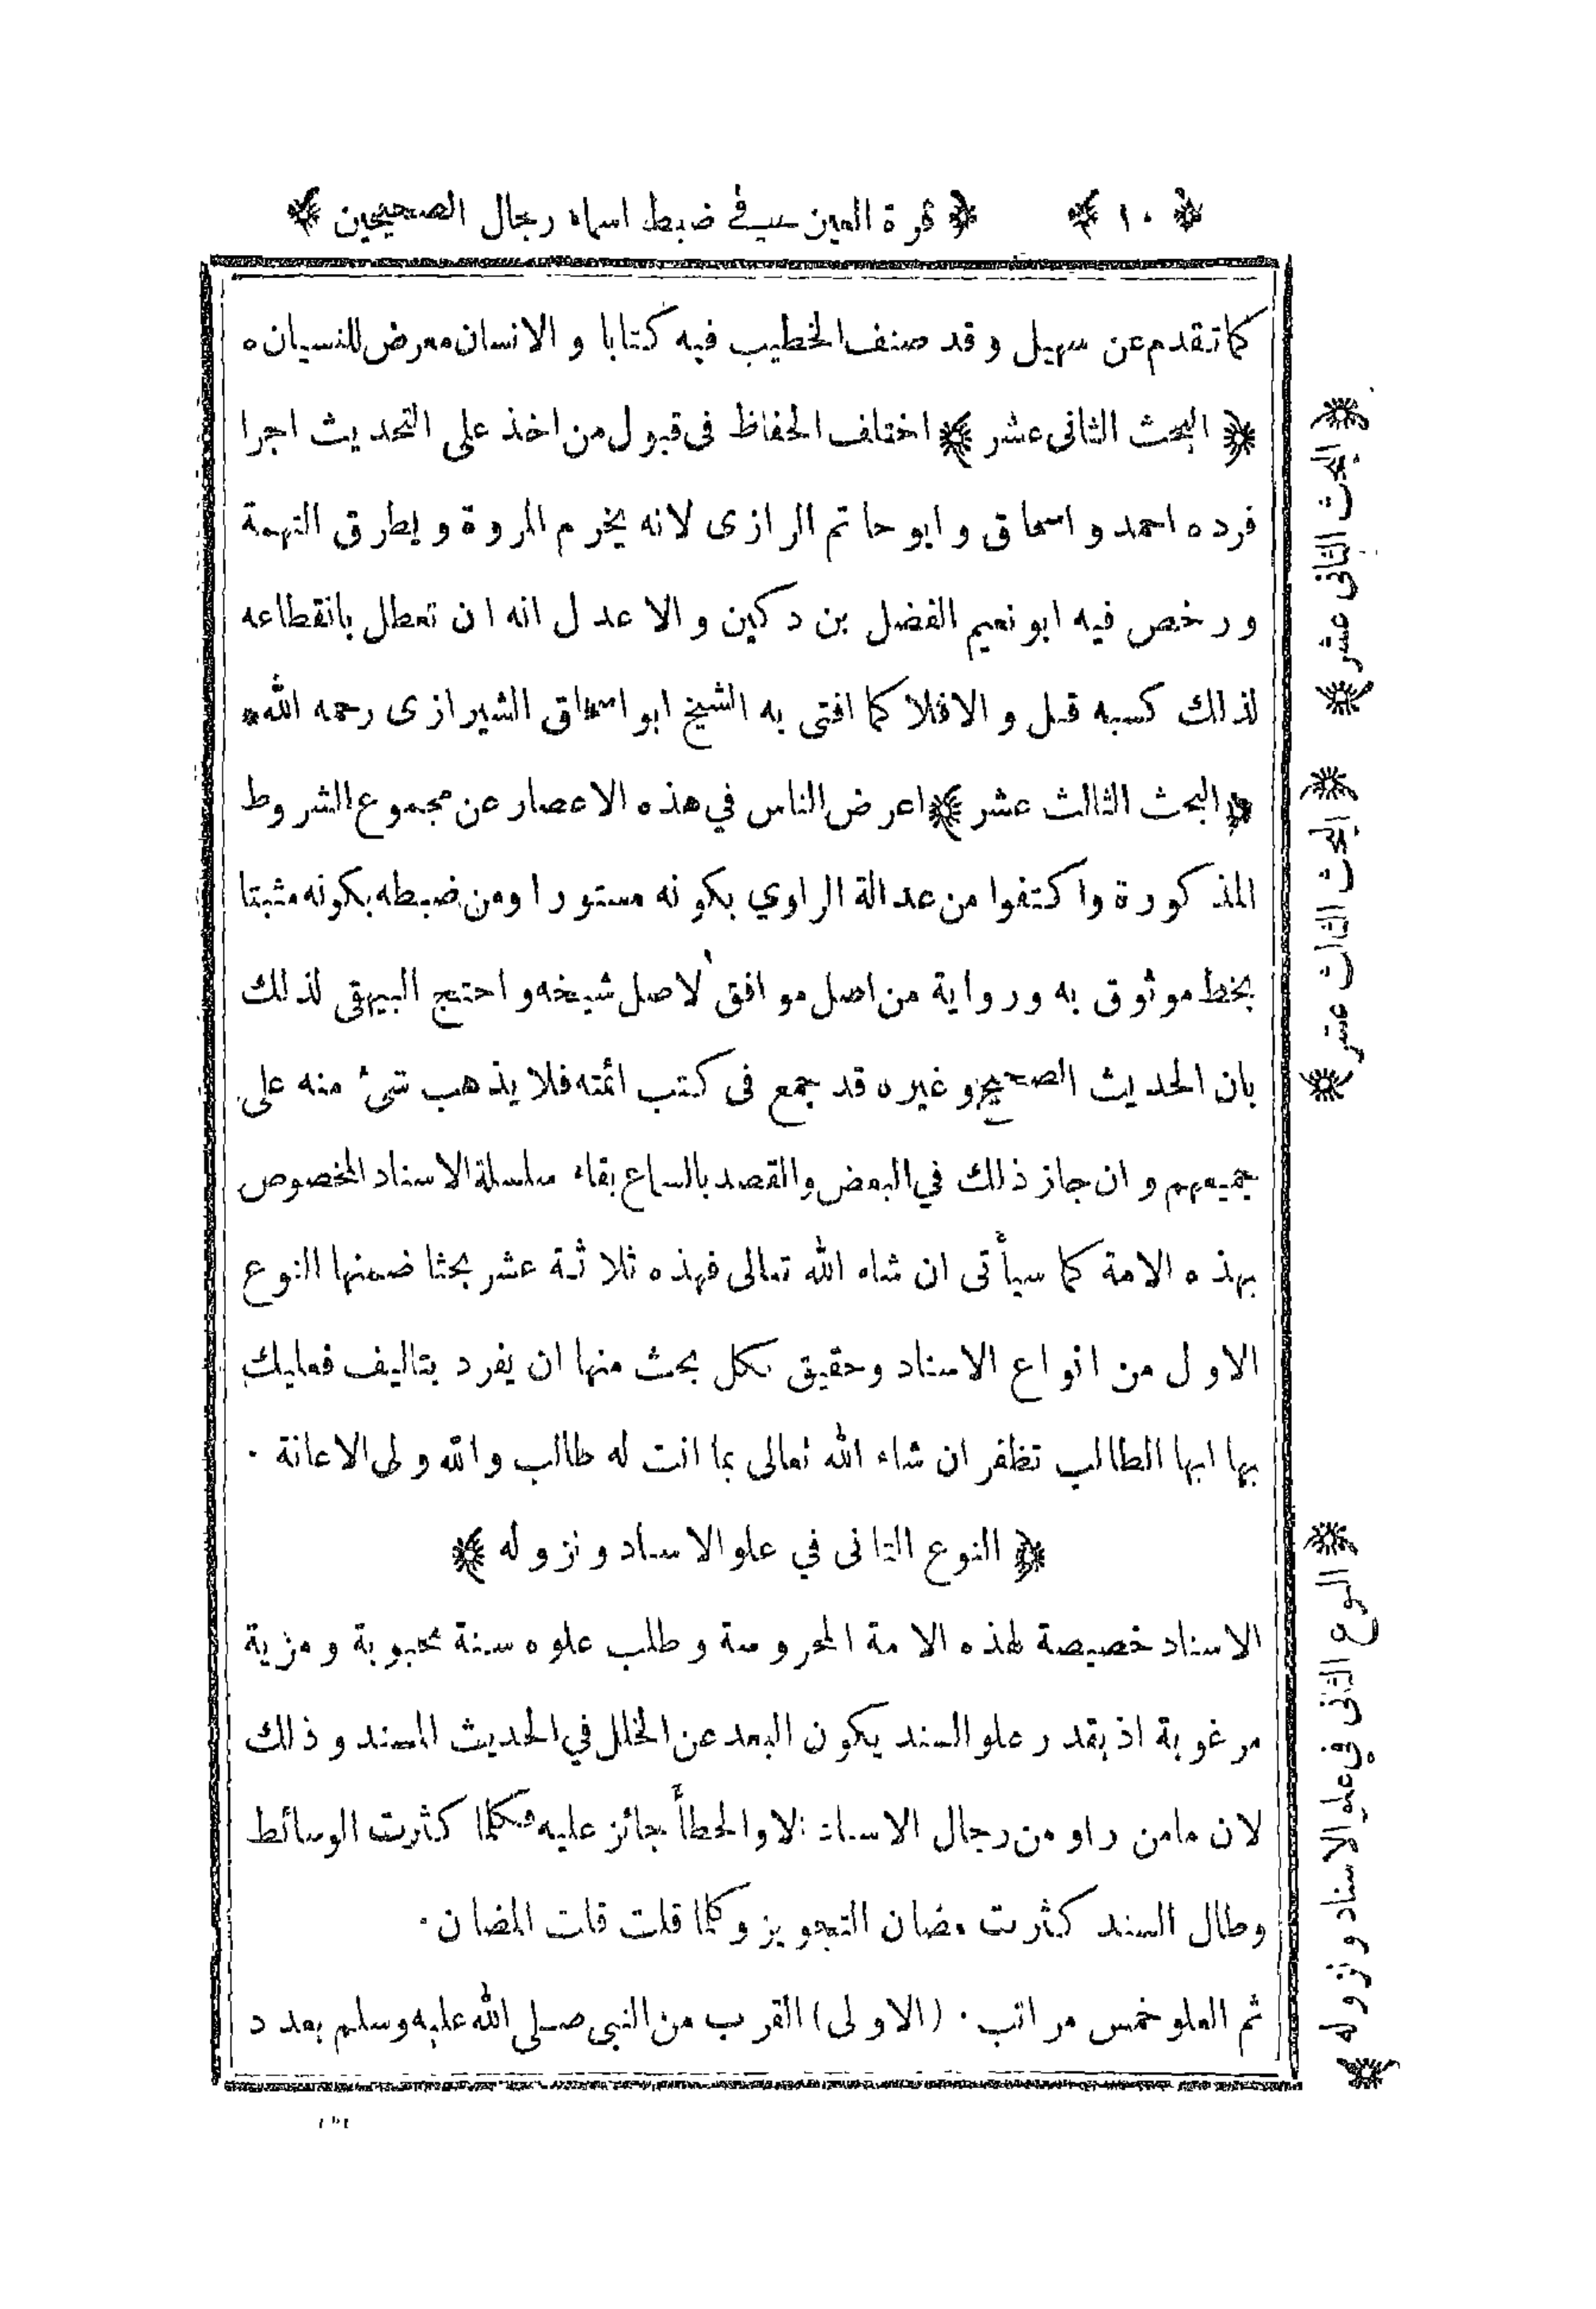 ﴿ ١٠ ﴾ ﴿ قرة العين في ضبط اسماء رجال الصحيحين ﴾
كما تقدم عن سهيل وقد صنف الخطيب فيه كتابا و الانسان معرض للنسيان ٥
﴿ البحث الثانى عشر ﴾ اختلف الحفاظ فى قبول من اخذ على التحديث اجرا
فرده احمد و اسحاق و ابو حاتم الرازى لانه يخرم المروة و يطرق التهمة
ورخص فيه ابو نعيم الفضل بن دكين و الاعدل انه ان تعطل بانقطاعه
لذلك كسبه قبل و الافلا كما افتى به الشيخ ابو اسحاق الشيرازى رحمه الله *
﴿ البحث الثالث عشر ﴾ اعرض الناس في هذه الاعصار عن مجموع الشروط
المذكورة واكتفوا من عدالة الراوي بكونه مستورا ومن ضبطه بكونه مثبتا
بخط موثوق به ورواية من اصل موافق لاصل شيخه و احتج البيهقى لذلك
بان الحديث الصحيح وغيره قد جمع فى كتب ائمته فلا يذهب شئ منه على
جميعهم و ان جاز ذلك في البعض والقصد بالسماع بقاء سلسلة الاسناد المخصوص
بهذه الامة كما سيأتى ان شاء الله تعالى فهذه ثلاثة عشر بحثا ضمنها النوع
الاول من انواع الاسناد وحقيق بكل بحث منها ان يفرد بتاليف فعليك
بها ايها الطالب تظفر ان شاء الله تعالى بما انت له طالب والله ولى الاعانة ٠
﴿ النوع الثانى في علو الاسناد ونزوله ﴾
الاسناد خصيصة لهذه الامة المحروسة وطلب علوه سنة محبوبة ومزية
مرغوبة اذ بقدر علو السند يكون البعد عن الخلل في الحديث المسند وذلك
لان مامن راو من رجال الاسناد الا والخطأ جائز عليه فكلما كثرت الوسائط
وطال السند كثرت مضان التجويز وكلما قلت قلت المضان ٠
ثم العلو خمس مراتب ٠ (الاولى) القرب من النبى صلى الله عليه وسلم بعدد
﴿ البحث الثانى عشر ﴾
﴿ البحث الثالث عشر ﴾
﴿ النوع الثانى في علو الاسناد ونزوله ﴾